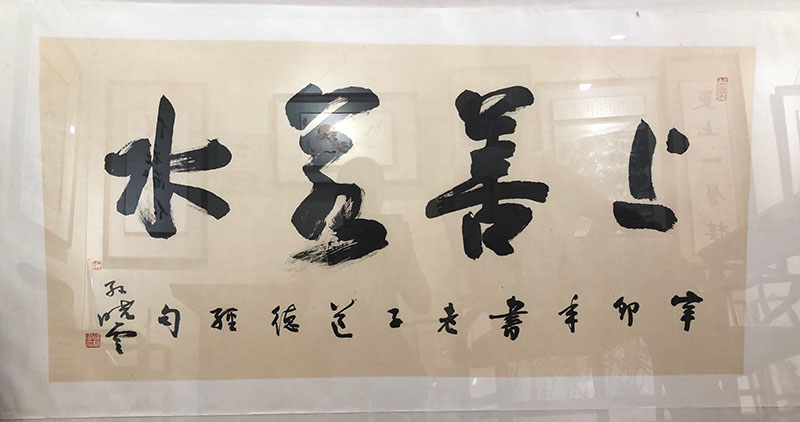 上善若水
辛卯年書老子道德經句
孙晓雲